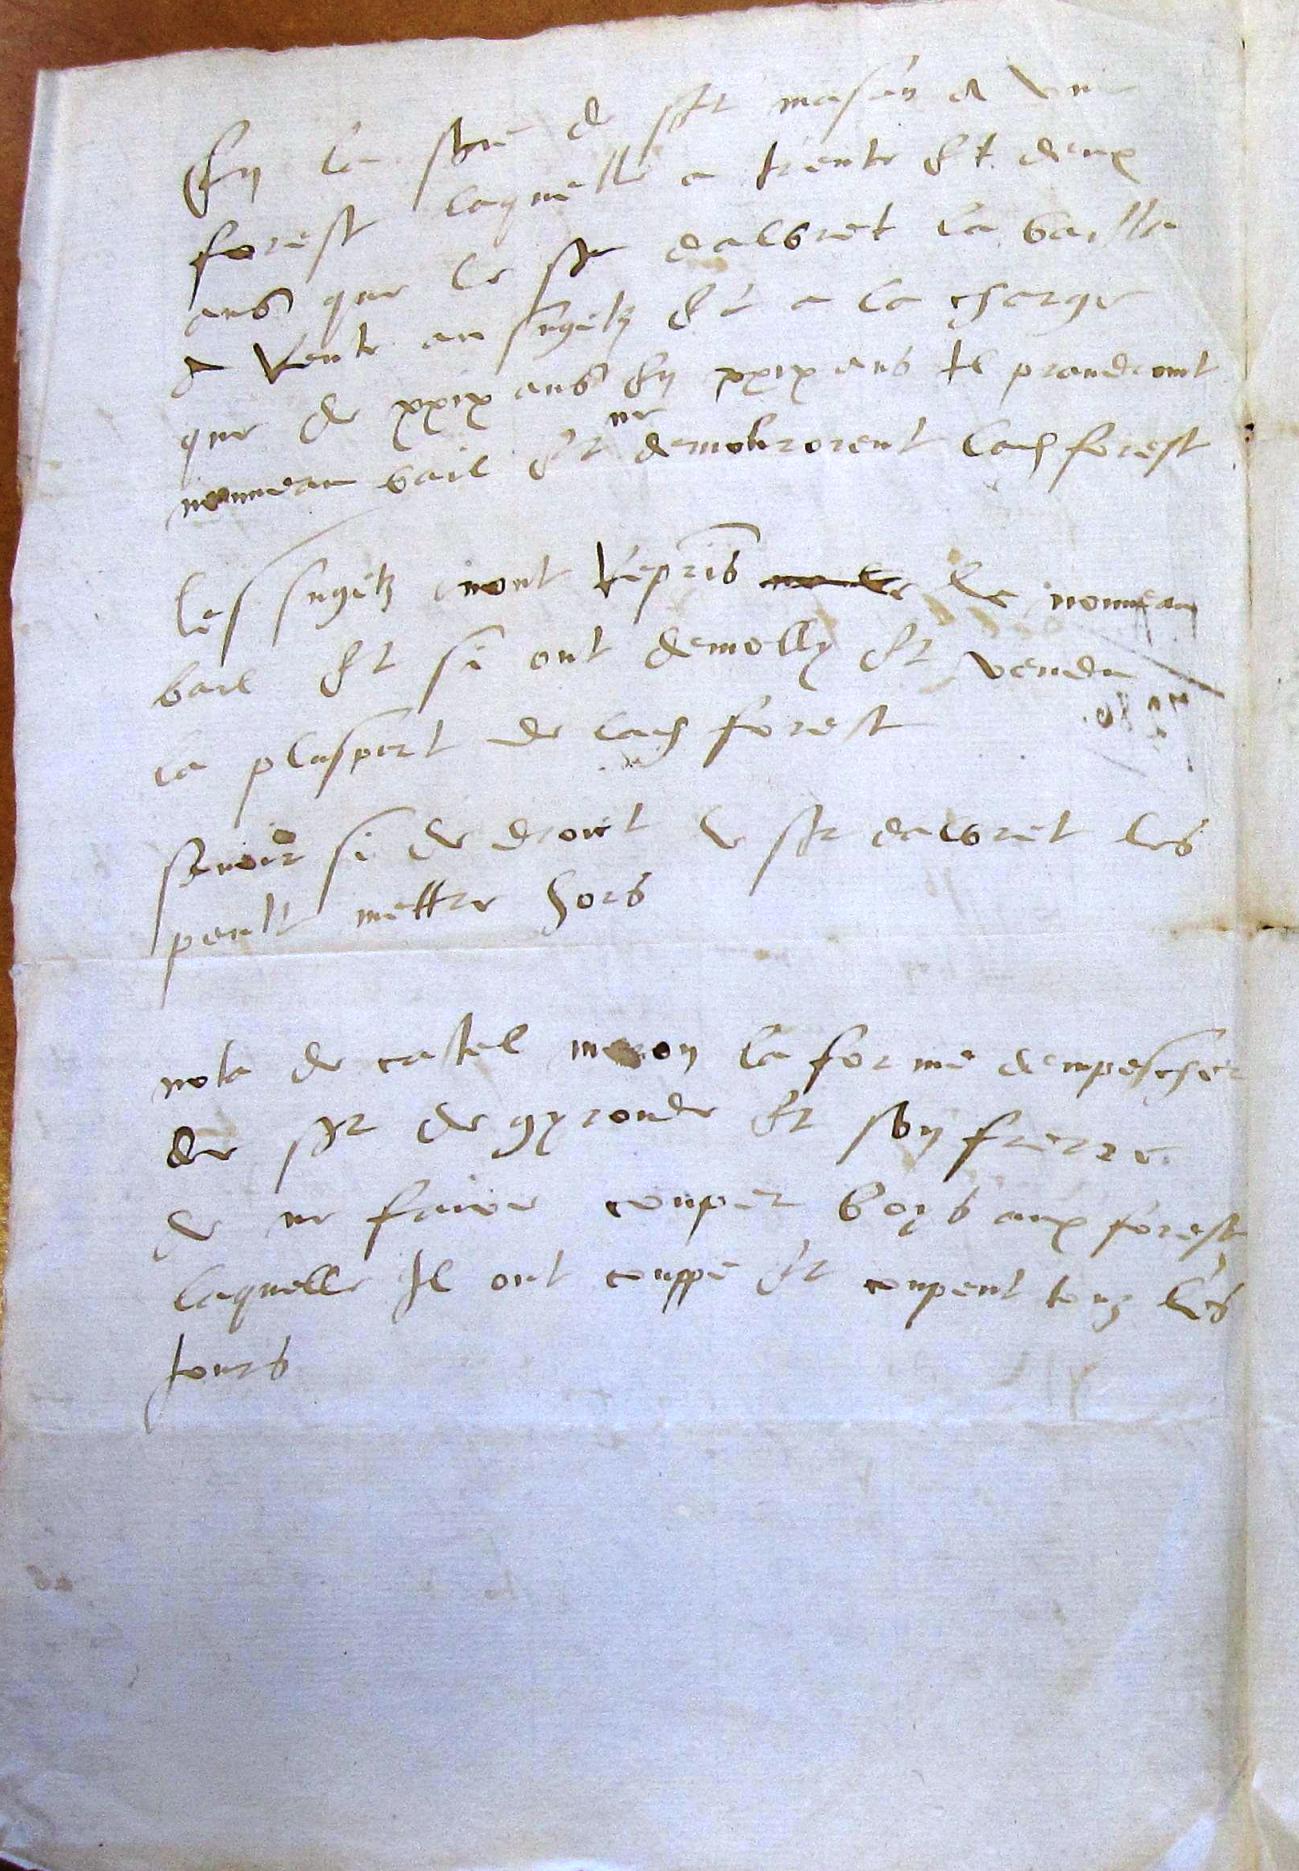 En la srie de sr masan a une
forest laquelle a trente et deux
ans que le sr dalbret la bailla
a rente au sugetz et a la charge
que de xxix ans en xxix ans il prandroint
nouueau bail et ne demolirorent lad forest
les sugetz nont repris de nouueau
bail et si ont demolly et vendu
la pluspert de lad forest
sauoir si de droict le sr dalbret les
peult mettre hors
nota de castel moron la forme dempescher
de sr de gyronde et son frerre
de ne faire couper boys aux forest
laquelle il ont couppe et coupent touz les
jours